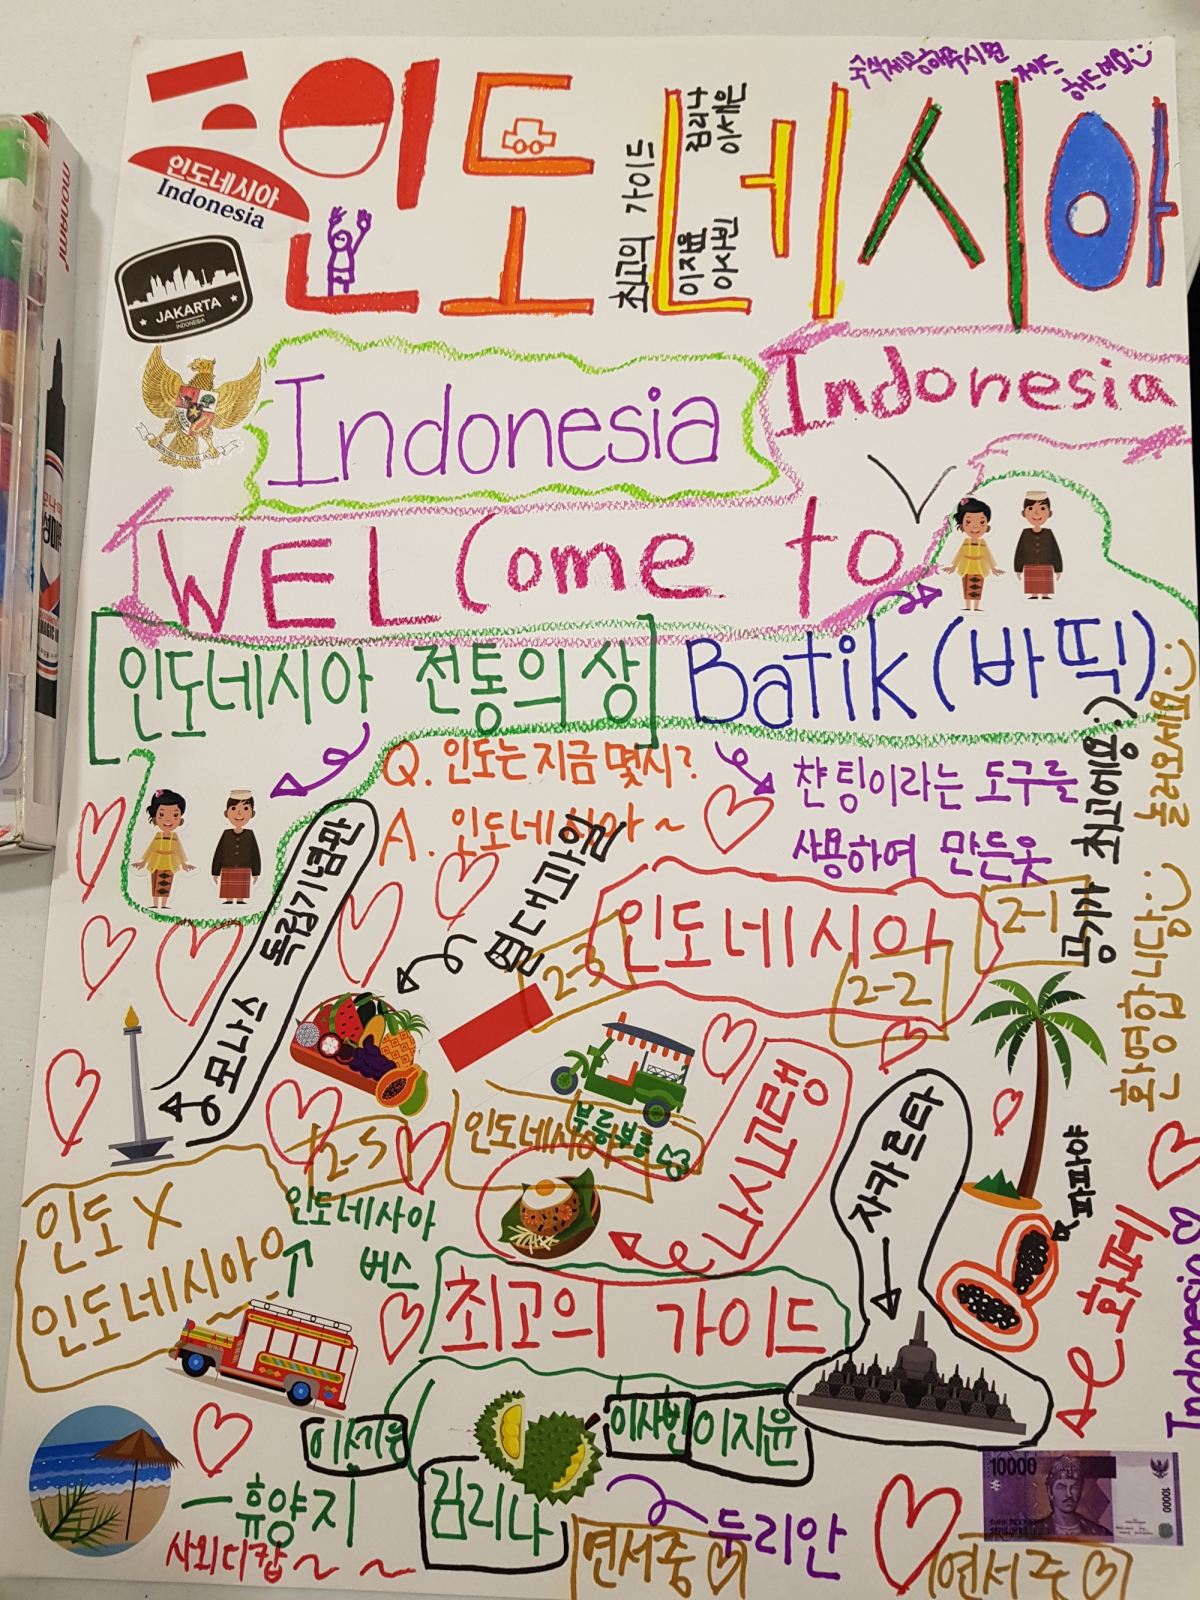 인도네시아
최고의 가이드
김리나
이세은
이지윤
이사빈
인도네시아
Indonesia
JAKARTA
INDONESIA
Indonesia
Indonesia
WELCome to
[인도네시아 전통의상]
Batik (바띡)
Q. 인도는 지금 몇시?
A. 인도네시아~
챤팅이라는 도구를
사용하여 만든옷
공기가 최고에요:)
놀러오세요
환영합니당
모나스 독립기념관
열대과일
인도네시아
2-1
2-2
2-3
2-5
부릉부릉
나시고랭
자카르타
파파야
화폐
Indonesia
인도 X
인도네시아O
인도네시아
버스
최고의 가이드
이사빈
이지윤
김리나
두리안
휴양지
연서중
연서중
10000
10000
monami